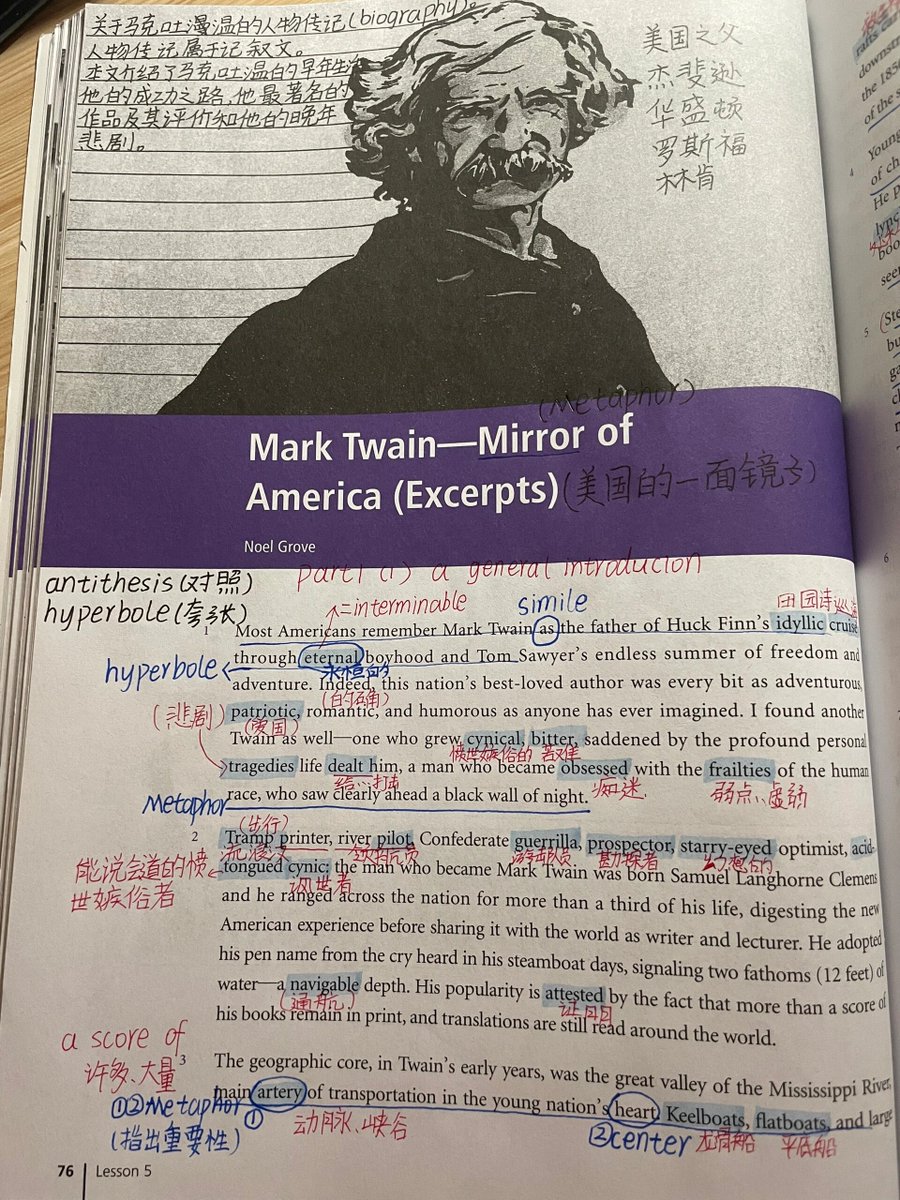 关于马克吐漫温的人物传记(biography)。
人物传记属于记叙文。
本文介绍了马克吐温的早年生活
他的成功之路,他最著名的
作品及其评价和他的晚年
悲剧。
美国之父
杰斐逊
华盛顿
罗斯福
林肯
(Metaphor)
Mark Twain—Mirror of
America (Excerpts)(美国的一面镜子)
Noel Grove
antithesis(对照)
hyperbole(夸张)
part1 (1) a general introducion
=interminable
simile
田园诗
1 Most Americans remember Mark Twain as the father of Huck Finn's idyllic cruise
hyperbole
through eternal boyhood and Tom Sawyer's endless summer of freedom and
永恒的
adventure. Indeed, this nation's best-loved author was every bit as adventurous,
(的确)
(悲剧)
patriotic, romantic, and humorous as anyone has ever imagined. I found another
(爱国)
Twain as well—one who grew cynical, bitter, saddened by the profound personal
愤世嫉俗的
tragedies life dealt him, a man who became obsessed with the frailties of the human
给…打击
痴迷
弱点、虚弱
Metaphor
race, who saw clearly ahead a black wall of night.
(步行)
2 Tramp printer, river pilot, Confederate guerrilla, prospector, starry-eyed optimist, acid-
流浪汉
游击队员
勘探者
幻想的
能说会道的愤
世嫉俗者
tongued cynic: the man who became Mark Twain was born Samuel Langhorne Clemens
讽世者
and he ranged across the nation for more than a third of his life, digesting the new
American experience before sharing it with the world as writer and lecturer. He adopted
his pen name from the cry heard in his steamboat days, signaling two fathoms (12 feet) of
water—a navigable depth. His popularity is attested by the fact that more than a score of
(通航)
证明
his books remain in print, and translations are still read around the world.
a score of
许多、大量
3 The geographic core, in Twain's early years, was the great valley of the Mississippi River,
①②Metaphor
(指出重要性)
main artery of transportation in the young nation's heart. Keelboats, flatboats, and large
①
动脉、峡谷
②center
龙骨船
平底船
76 Lesson 5
rafts
downstr
the 185
of the s
4 Young
of ch
He p
lync
boo
seem
5 (Ste
bu
ga
cl
6